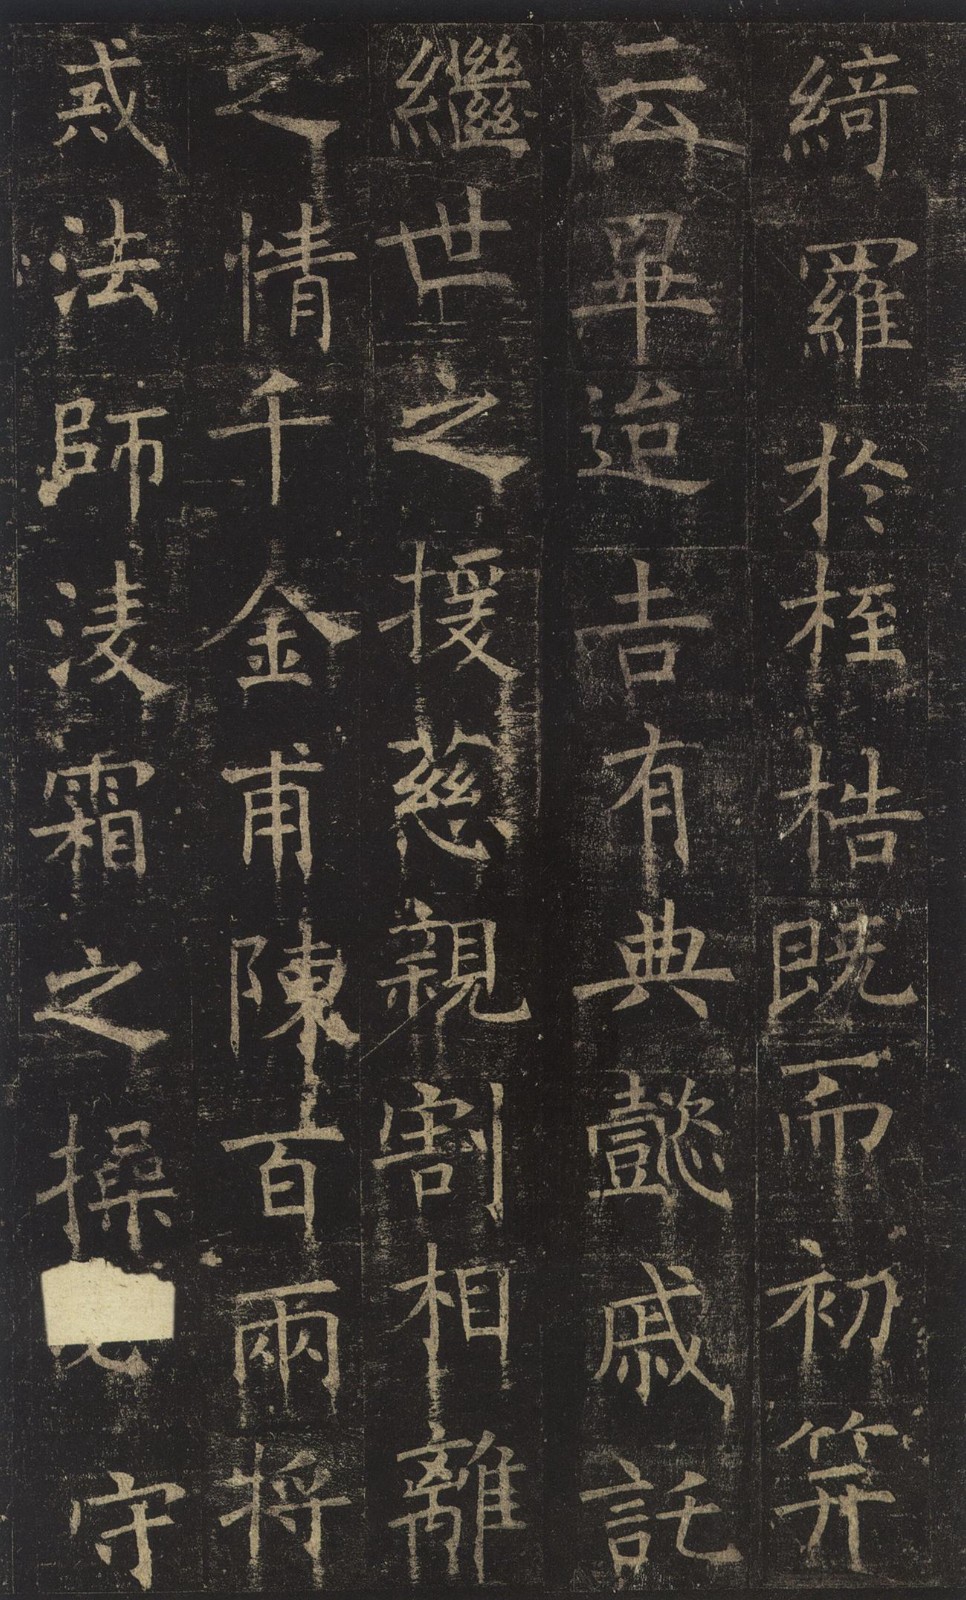 綺羅於桎梏既而初笄
云畢迨吉有典懿戚託
繼世之援慈親割相離
之情千金甫陳百兩將
戒法師淩霜之操
守